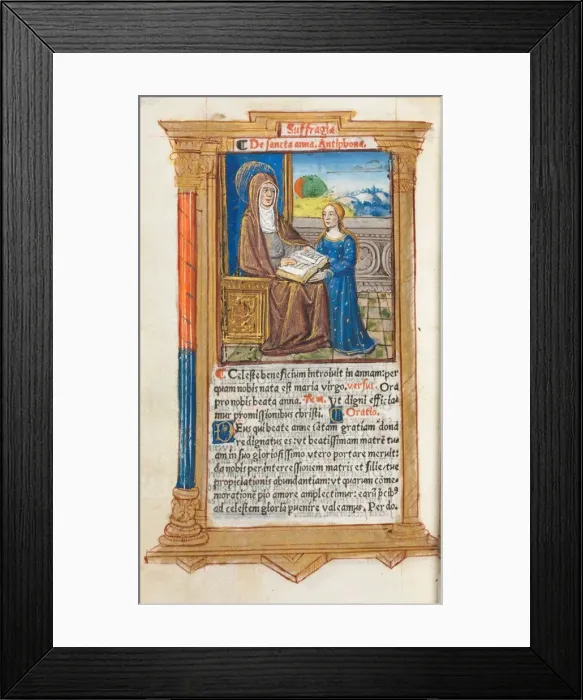 Suffragia
De sancta anna. Antiphona.
Celeste beneficium introiuit in annam: per
quam nobis nata est maria virgo. versus. Ora
pro nobis beata anna. Vt digni efficia
mur promissionibus christi. Oratio.
DEus qui beate anne tātam gratiam dona
re dignatus es: vt beatissimam matrē tu
am in suo gloriosissimo vtero portare meruit:
da nobis per intercessionem matris et filie tue
propiciationis abundantiam: vt quarum cōme
moratione pio amore amplectimur: earū
ad celestem gloriā puenire valeamus. Per do.